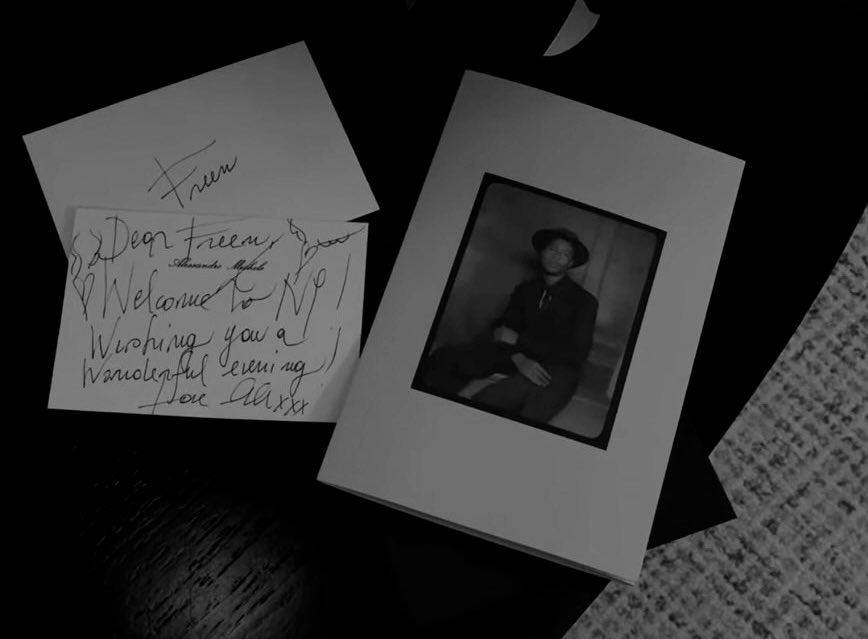 Freen
Dear Freen,
Alessandro Michele
Welcome to NY!
Wishing you a
Wonderful evening!!
love
xxx